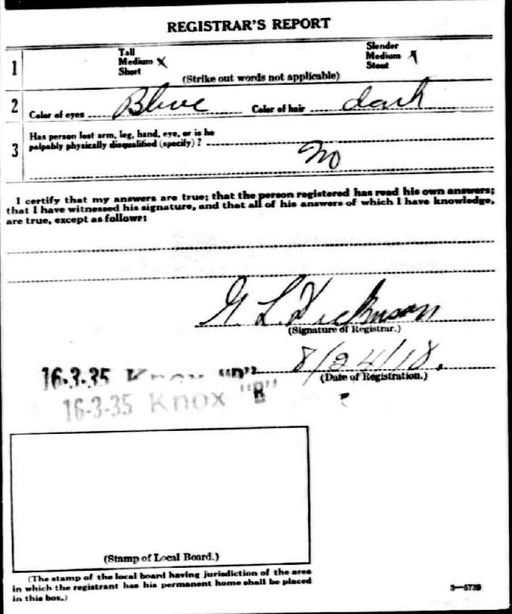 REGISTRAR'S REPORT
1
Tall
Medium x
Short
Slender
Medium x
Stout
(Strike out words not applicable)
2 Color of eyes Blue Color of hair dark
3 Has person lost arm, leg, hand, eye, or is he
palpably physically disqualified (specify)?
No
I certify that my answers are true; that the person registered has read his own answers;
that I have witnessed his signature, and that all of his answers of which I have knowledge,
are true, except as follows:
L. Dickinson
(Signature of Registrar.)
8/24/18.
(Date of Registration.)
16-3-35 Knox
16-3-35 Knox "B"
(Stamp of Local Board.)
(The stamp of the local board having jurisdiction of the area
in which the registrant has his permanent home shall be placed
in this box.)
3—5739